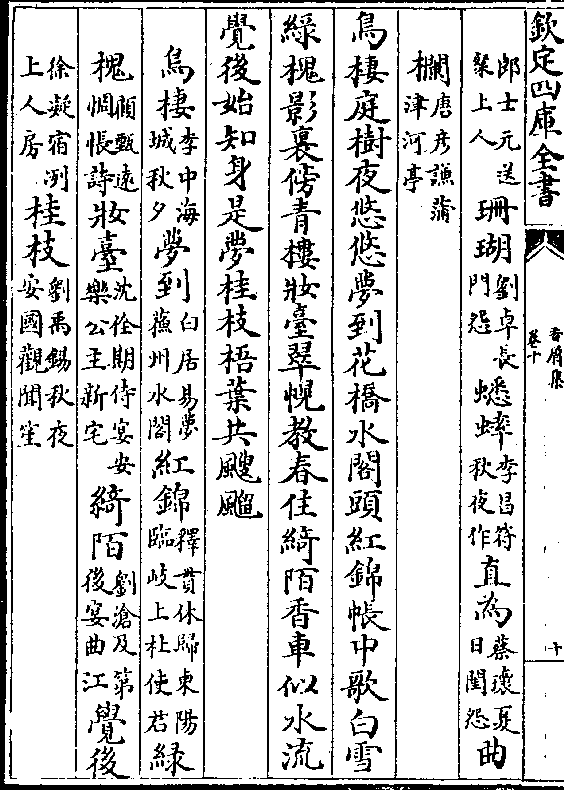 欽定四庫全書
香屑集
卷十
十
郎士元送粲上人 珊瑚 劉卓長門怨 蟋蟀 李昌符秋夜作 直為 蔡瓌夏日閨怨 曲
欄 唐彦謙蒲津河亭
烏棲庭樹夜悠悠夢到花橋水閣頭紅錦帳中歌白雪
緑槐影裏傍青樓妝臺翠幌教春住綺陌香車似水流
覺後始知身是夢桂枝梧葉共颼飀
烏棲 李中海城秋夕 夢到 白居易夢蘇州水閣 紅錦 釋貫休歸東陽臨岐上杜使君 緑
槐 顧甄逺惆悵詩 妝臺 沈佺期侍宴安樂公主新宅 綺陌 劉滄及第後宴曲江 覺後
徐凝宿冽上人房 桂枝 劉禹錫秋夜安國觀聞笙